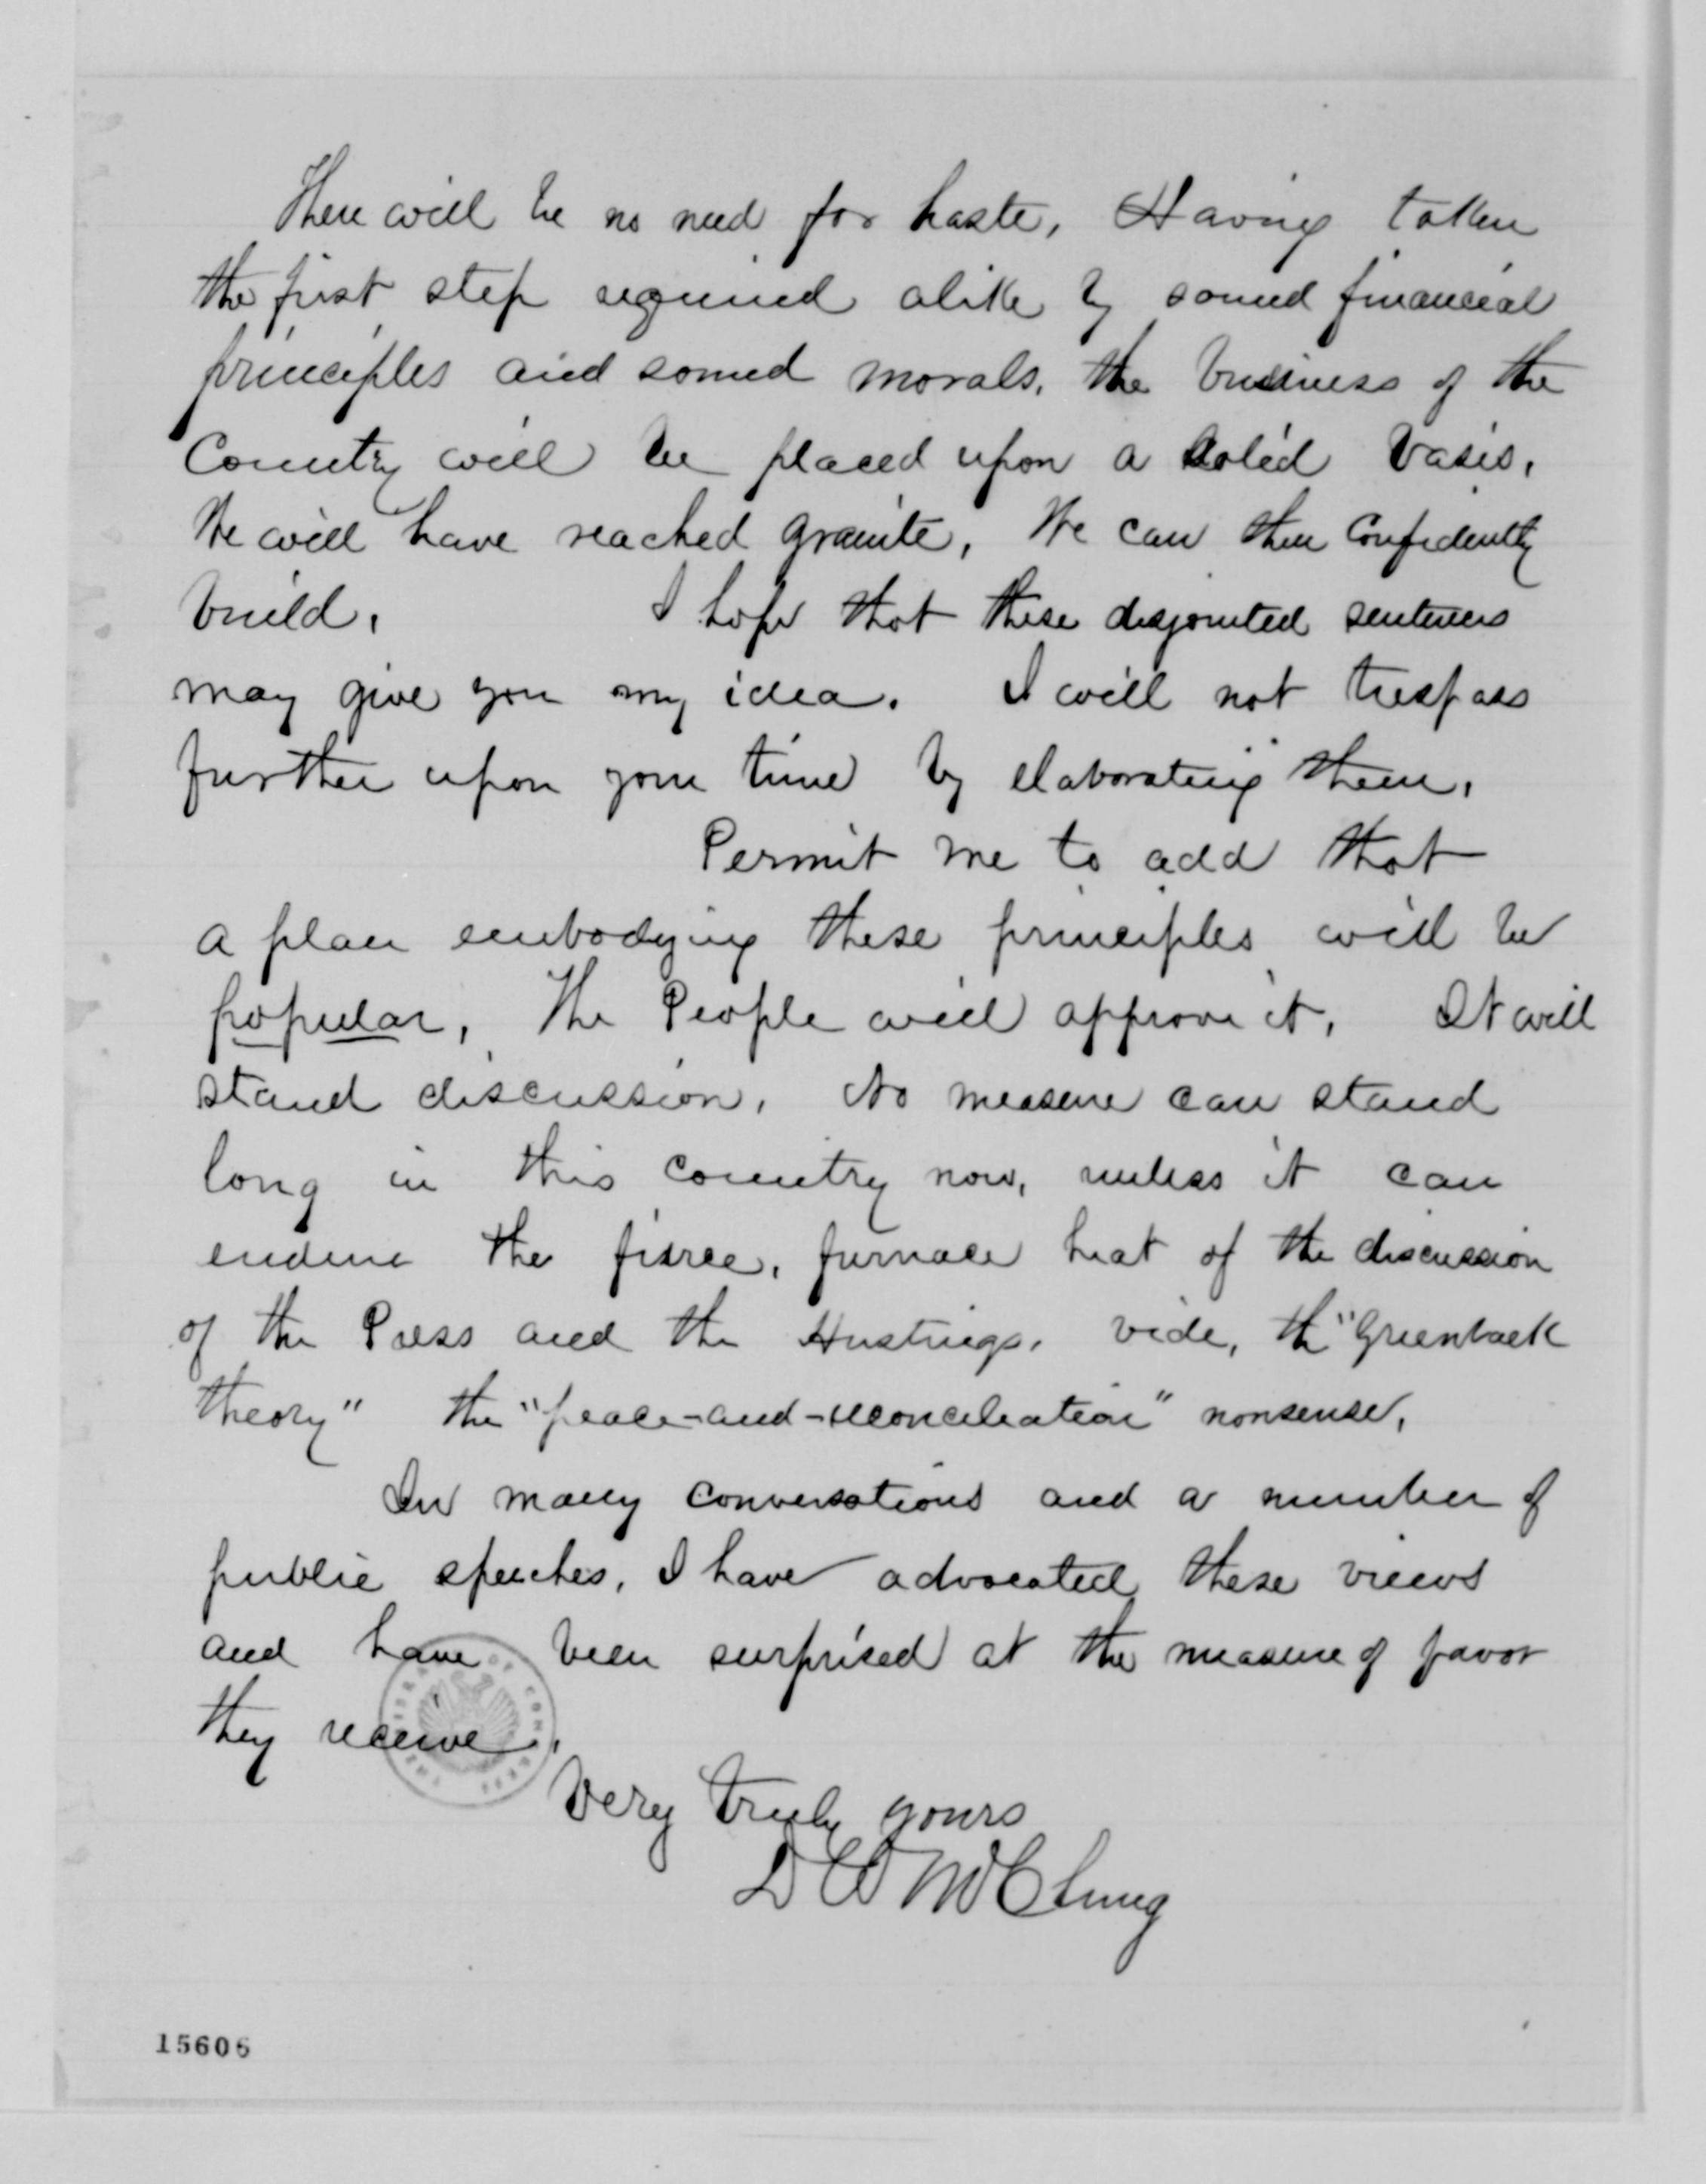 There will be no need for haste. Having taken
the first step required alike by sound financial
principles and sound morals, the business of the
Country will be placed upon a solid basis.
We will have reached granite. We can then confidently
build. I hope that these disjointed sentences
may give you my idea. I will not trespass
further upon your time by elaborating them.
Permit me to add that
a plan embodying these principles will be
popular. The People will approve it. It will
stand discussion. No measure can stand
long in this country now, unless it can
endure the fierce, furnace heat of the discussion
of the Press and the Hustings. vide, the "Greenback
theory" the "peace-and-reconciliation" nonsense.
In many conversations and a number of
public speeches, I have advocated these views
and have been surprised at the measure of favor
they receive.
Very truly yours
D W McClung
15606